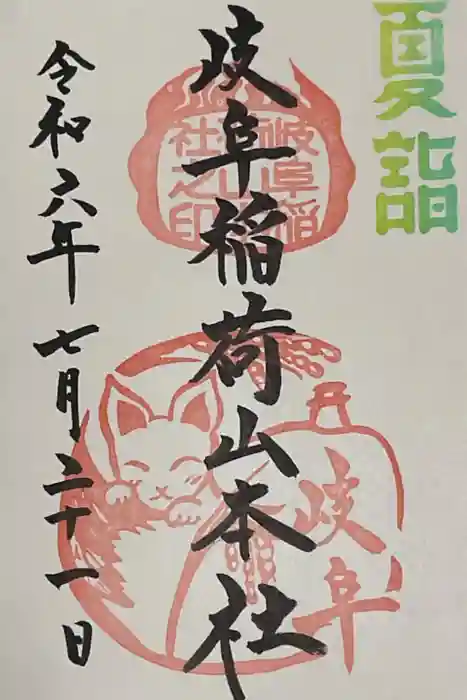 夏詣
岐阜稲荷山本社
令和六年七月二十一日
岐阜
岐阜稲
社之印